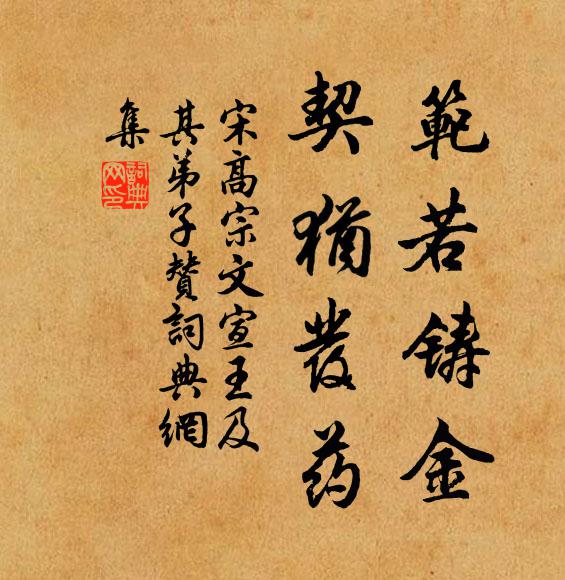 範若鋳金
契猶發药
宋高宗文宣王及
其弟子贊詞典網
集
詞典
网印